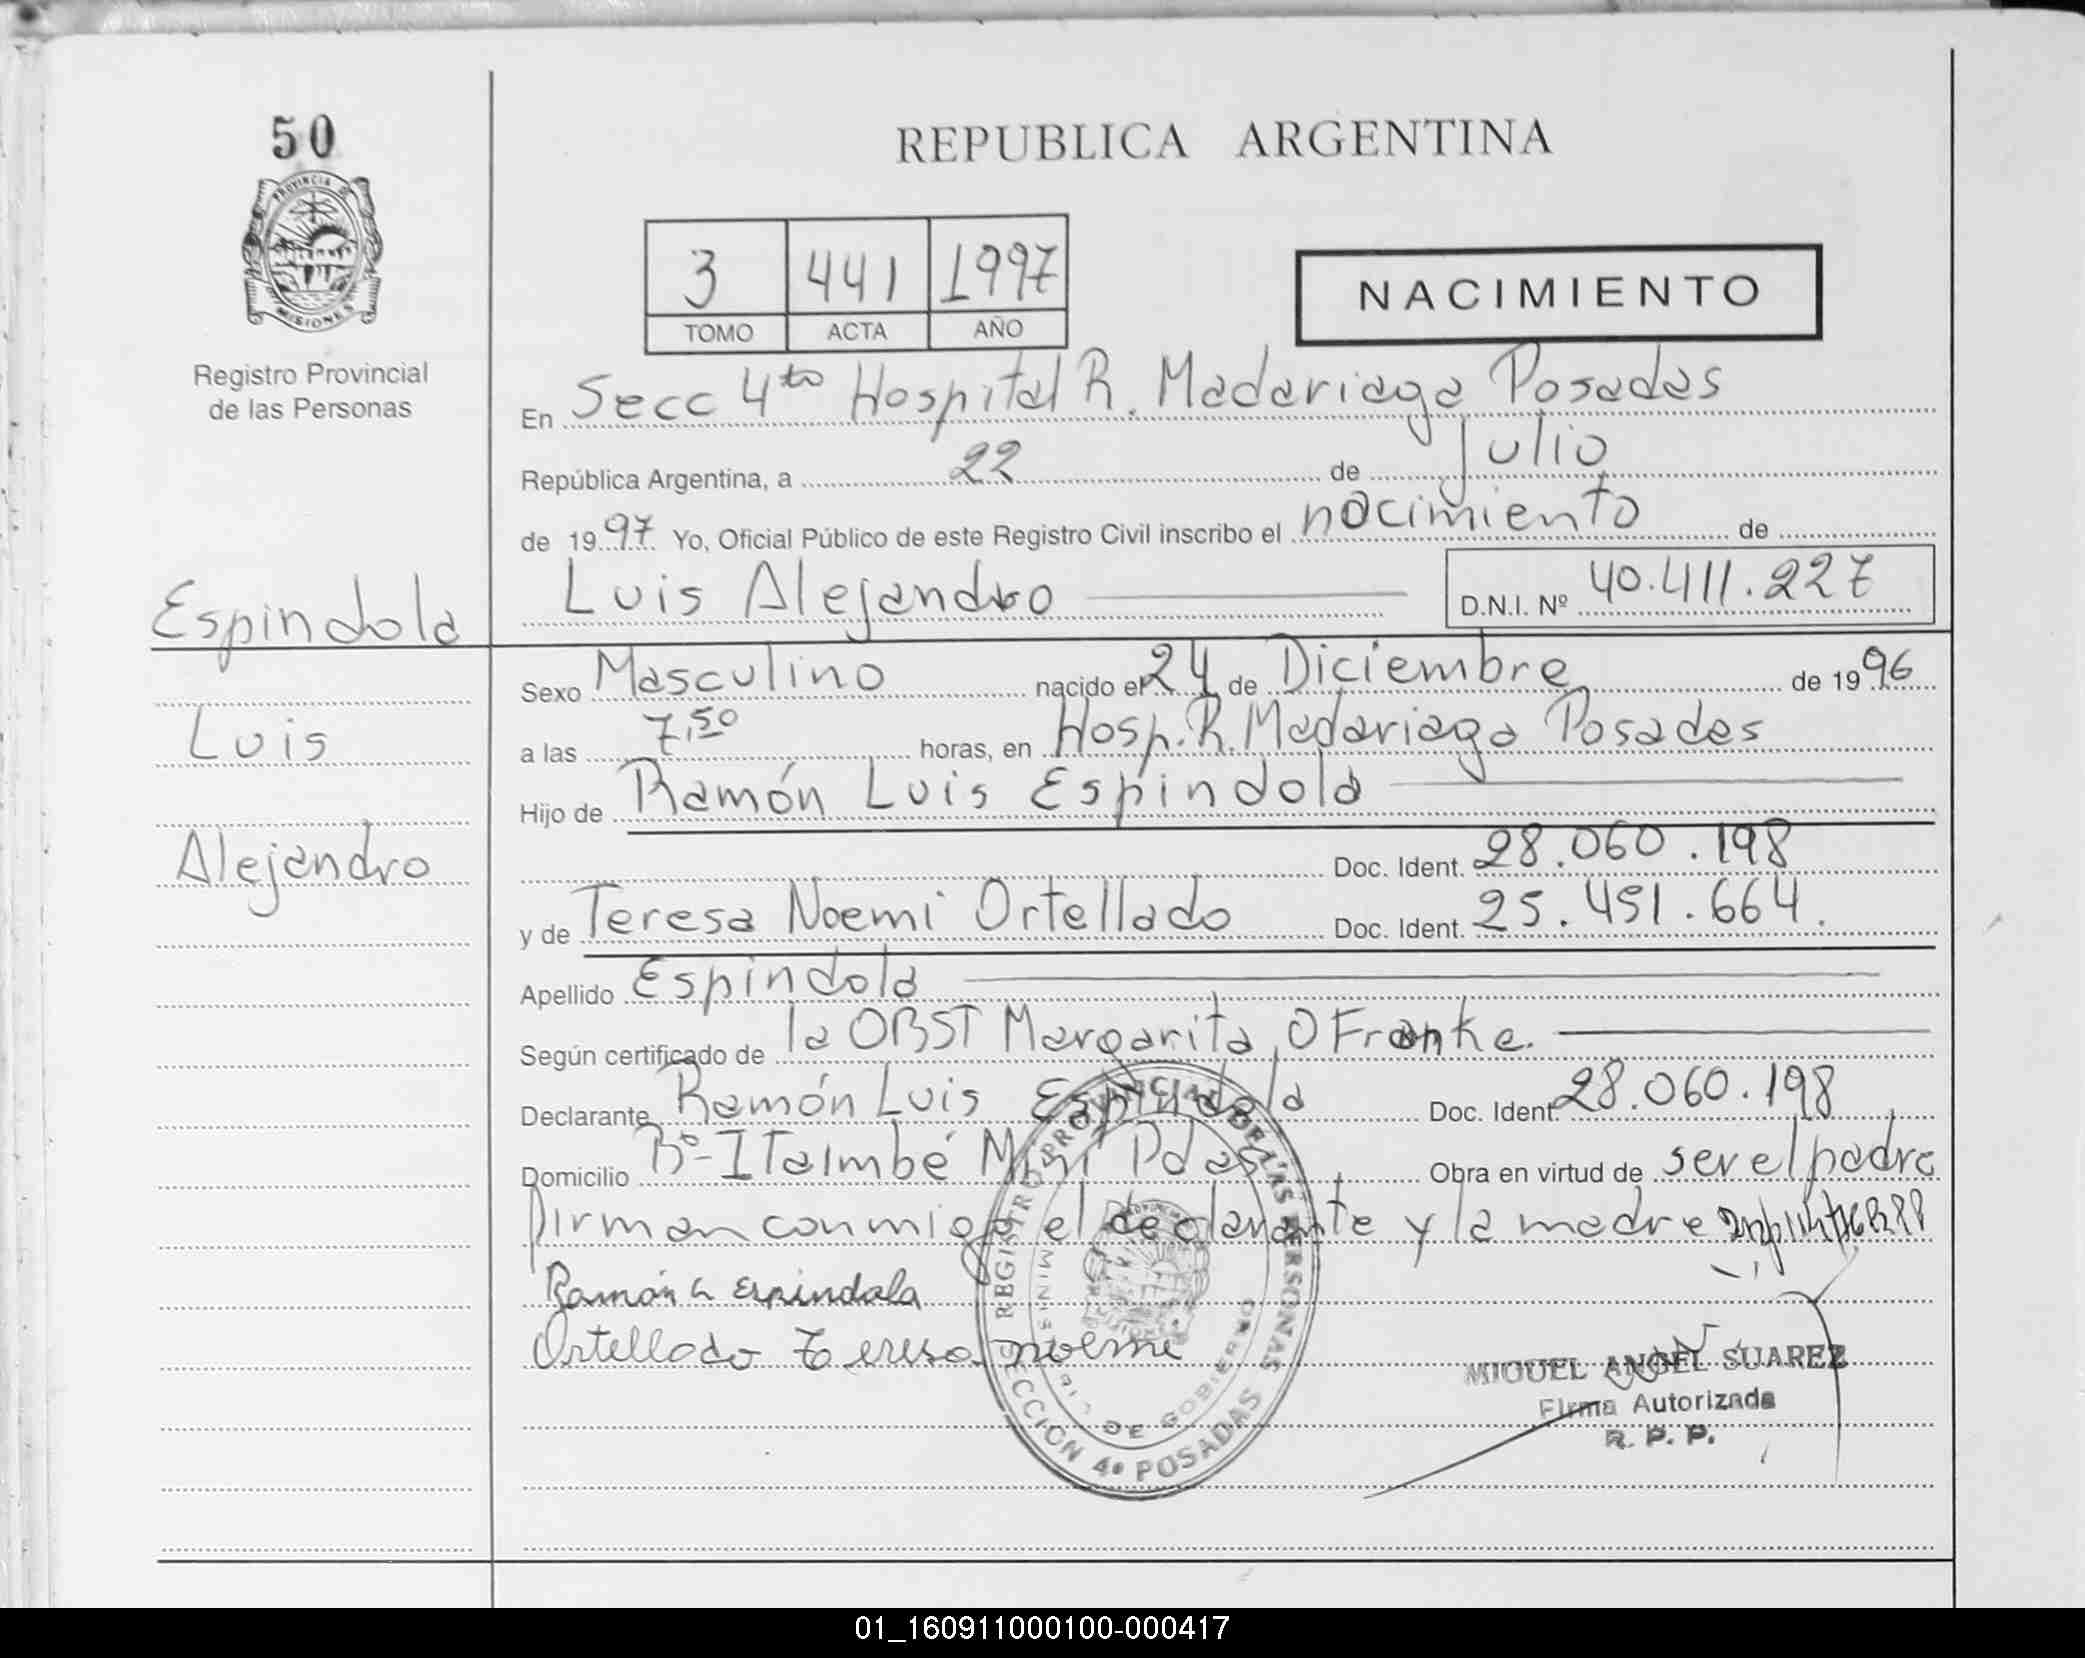 50
PROVINCIA DE
MISIONES
Registro Provincial
de las Personas
REPUBLICA ARGENTINA
3 441 1997
TOMO ACTA AÑO
NACIMIENTO
En Secc 4to Hospital R. Madariaga Posadas
República Argentina, a 22 de Julio
de 1997 Yo, Oficial Público de este Registro Civil inscribo el nacimiento de
Luis Alejandro D.N.I. Nº 40.411.227
Espindola
Luis
Alejandro
Sexo Masculino nacido el 24 de Diciembre de 1996
a las 7,50 horas, en Hosp. R. Madariaga Posadas
Hijo de Ramón Luis Espindola
Doc. Ident. 28.060.198
y de Teresa Noemi Ortellado Doc. Ident. 25.451.664.
Apellido Espindola
Según certificado de la OBST Margarita O Franke.
Declarante Ramón Luis Espindola Doc. Ident. 28.060.198
Domicilio Bº- Itaimbé Mini Pdas Obra en virtud de ser el padre
firman conmigo el declarante y la madre
Ramón L Espindola
Ortellado Teresa noemi
REGISTRO PROVINCIAL DE LAS PERSONAS
MINISTERIO DE GOBIERNO
SECCIÓN 4º POSADAS
MIGUEL ANGEL SUAREZ
Firma Autorizada
R. P. P.
01_160911000100-000417